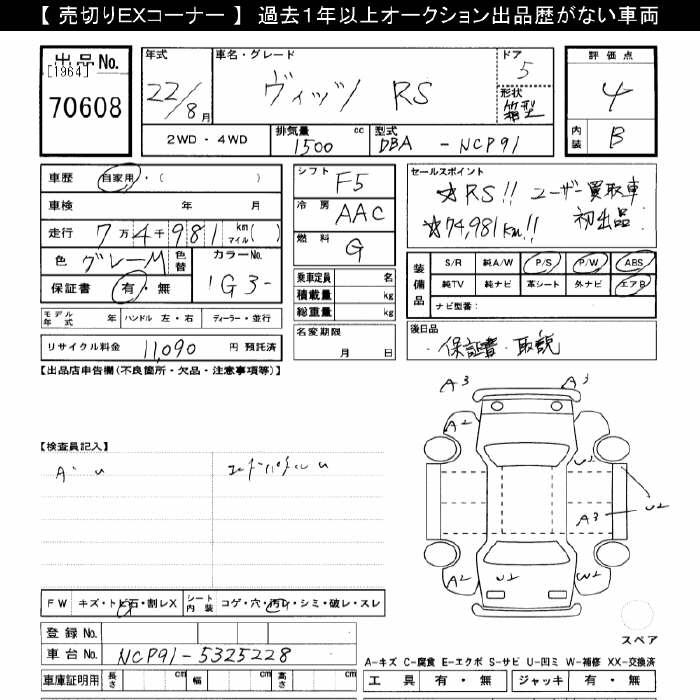 【 売切りEXコーナー 】 過去１年以上オークション出品歴がない車両
出品No.
[1964]
70608
年式
22/8月
車名・グレード
ヴィッツ RS
ドア
5
形状
箱型
2WD・4WD
排気量 cc
1500
型式
DBA - NCP91
評価点
4
内装
B
車歴
自家用・( )
車検 年 月
走行 7万4千981 km マイル( )
色 グレーM
色替
カラーNo.
1G3-
保証書 有・無
モデル年式 年 ハンドル 左・右 ディーラー・並行
リサイクル料金 11,090 円 預託済
シフト F5
冷房 AAC
燃料 G
乗車定員 名
積載量 kg
総重量 kg
名変期限
月 日
セールスポイント
☆RS!! ユーザー買取車
☆74,981km!! 初出品
装備品
S/R 純A/W P/S P/W ABS
純TV 純ナビ 革シート 外ナビ エアB
ナビ型番:
後日品
・保証書・取説
【出品店申告欄(不良箇所・欠品・注意事項等)】
【検査員記入】
A・U
A3 A3
A2 U2
A3 U2
A2 U2 W2
FW キズ・トビ石・割レX
シート内装 コゲ・穴・汚レ・シミ・破レ・スレ
登録No.
車台No. NCP91-5325228
車庫証明用 長さ cm 幅 cm 高さ cm
スペア
A-キズ C-腐食 E-エクボ S-サビ U-凹ミ W-補修 XX-交換済
工具 有・無 ジャッキ 有・無